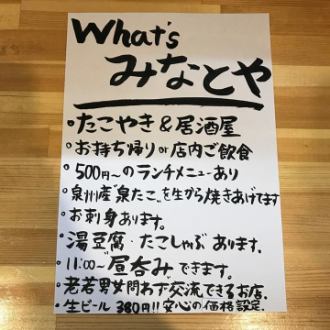 What's
みなとや
・たこやき&居酒屋
・お持ち帰りor店内ご飲食
・500円〜のランチメニューあり
・泉州産"泉たこ"を生から焼きあげてます
・お刺身あります。
・湯豆腐・たこしゃぶあります。
・11:00〜昼呑みできます。
・老若男女問わず交流できるお店。
・生ビール380円!!安心の価格設定。